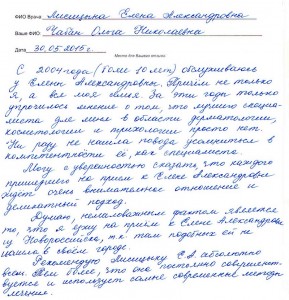 ФИО Врача Лисицына Елена Александровна
Ваше ФИО: Чабан Ольга Николаевна
Дата 30.05.2015г.
Место для Вашего отзыва:
С 2004 года (более 10 лет) обслуживаюсь
у Елены Александровны. Причём не только
я, а вся моя семья. За эти годы только
упрочилось мнение о том, что лучшего специа-
листа для меня в области дерматологии,
косметологии и трихологии просто нет.
Ни разу не нашла повода усомниться в
компетентности её, как специалиста.
Могу с уверенностью сказать, что каждого
пришедшего на приём к Елене Александровне
ждёт очень внимательное отношение и
деликатный подход.
Думаю, немаловажным фактом является
то, что я езжу на приём к Елене Александровне
из Новороссийска, т.к. там подобных ей не
нашла в своём городе.
Рекомендую Лисицыну Е.А. абсолютно
всем. Тем более, что она постоянно совершенст-
вуется и использует самые современные методы
лечения.